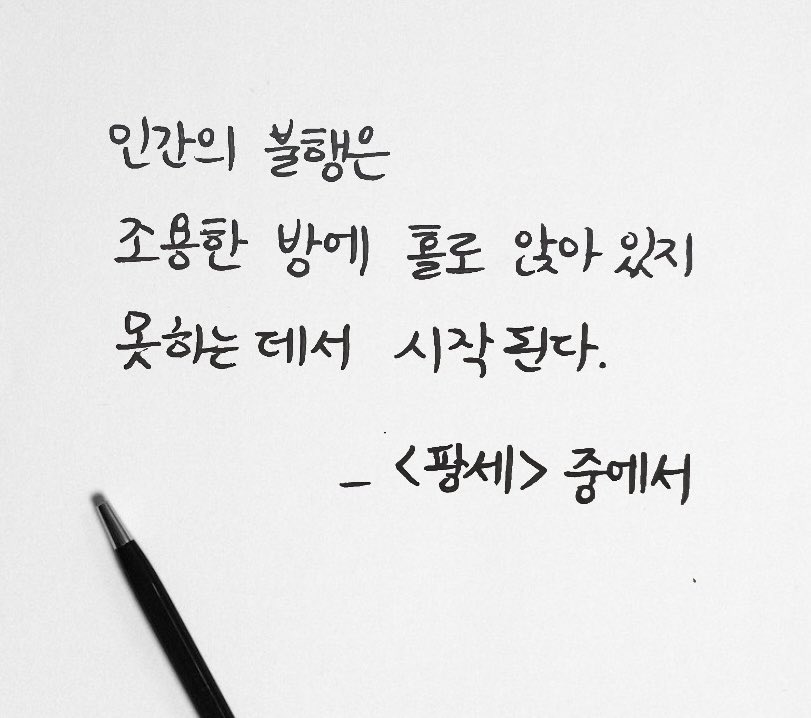 인간의 불행은
조용한 방에 홀로 앉아 있지
못하는 데서 시작된다.
_ <팡세> 중에서